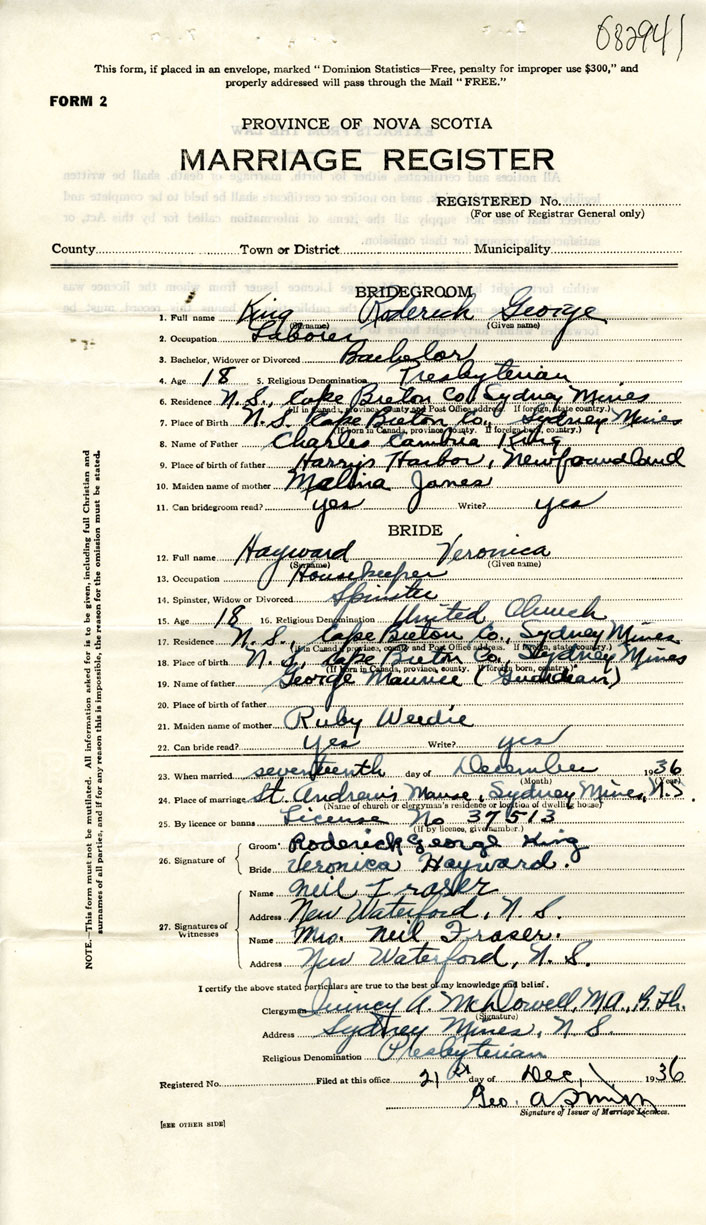 682941
This form, if placed in an envelope, marked "Dominion Statistics—Free, penalty for improper use $300," and
properly addressed will pass through the Mail "FREE."
FORM 2
PROVINCE OF NOVA SCOTIA
MARRIAGE REGISTER
REGISTERED No.
(For use of Registrar General only)
County Town or District Municipality
BRIDEGROOM
1. Full name King Roderick George
(Surname) (Given name)
2. Occupation Laborer
3. Bachelor, Widower or Divorced Bachelor
4. Age 18 5. Religious Denomination Presbyterian
6. Residence N.S., Cape Breton Co., Sydney Mines
(If in Canada, province, county and Post Office address. If foreign, state country.)
7. Place of Birth N.S. Cape Breton Co., Sydney Mines
(If born in Canada, province, county. If foreign born, country.)
8. Name of Father Charles Cambria King
9. Place of birth of father Harrys Harbor, Newfoundland
10. Maiden name of mother Malina Janes
11. Can bridegroom read? yes Write? yes
BRIDE
12. Full name Hayward Veronica
(Surname) (Given name)
13. Occupation Housekeeper
14. Spinster, Widow or Divorced Spinster
15. Age 18 16. Religious Denomination United Church
17. Residence N.S., Cape Breton Co., Sydney Mines
(If in Canada province, county and Post Office address. If foreign, state country.)
18. Place of birth N.S., Cape Breton Co., Sydney Mines
(If born in Canada, province, county. If foreign born, country.)
19. Name of father George Maurice (Guardian)
20. Place of birth of father
21. Maiden name of mother Ruby Weedie
22. Can bride read? Yes Write? yes
23. When married seventeenth day of December 1936
(Month) (Year)
24. Place of marriage St. Andrew's Manse, Sydney Mines, N.S.
(Name of church or clergyman's residence or location of dwelling house)
25. By licence or banns License No 37513
(If by licence, give number.)
26. Signature of
Groom Roderick George King
Bride Veronica Hayward.
27. Signatures of Witnesses
Name Neil Fraser
Address New Waterford, N.S.
Name Mrs. Neil Fraser.
Address New Waterford, N.S.
I certify the above stated particulars are true to the best of my knowledge and belief.
Clergyman Quincy A. McDowell, M.A., B.Th.
(Signature)
Address Sydney Mines, N S
Religious Denomination Presbyterian
Registered No. Filed at this office 21st day of Dec, 1936
Geo. A
Signature of Issuer of Marriage Licences.
[SEE OTHER SIDE]
NOTE.—This form must not be mutilated. All information asked for is to be given, including full Christian and
surnames of all parties, and if for any reason this is impossible, the reason for the omission must be stated.